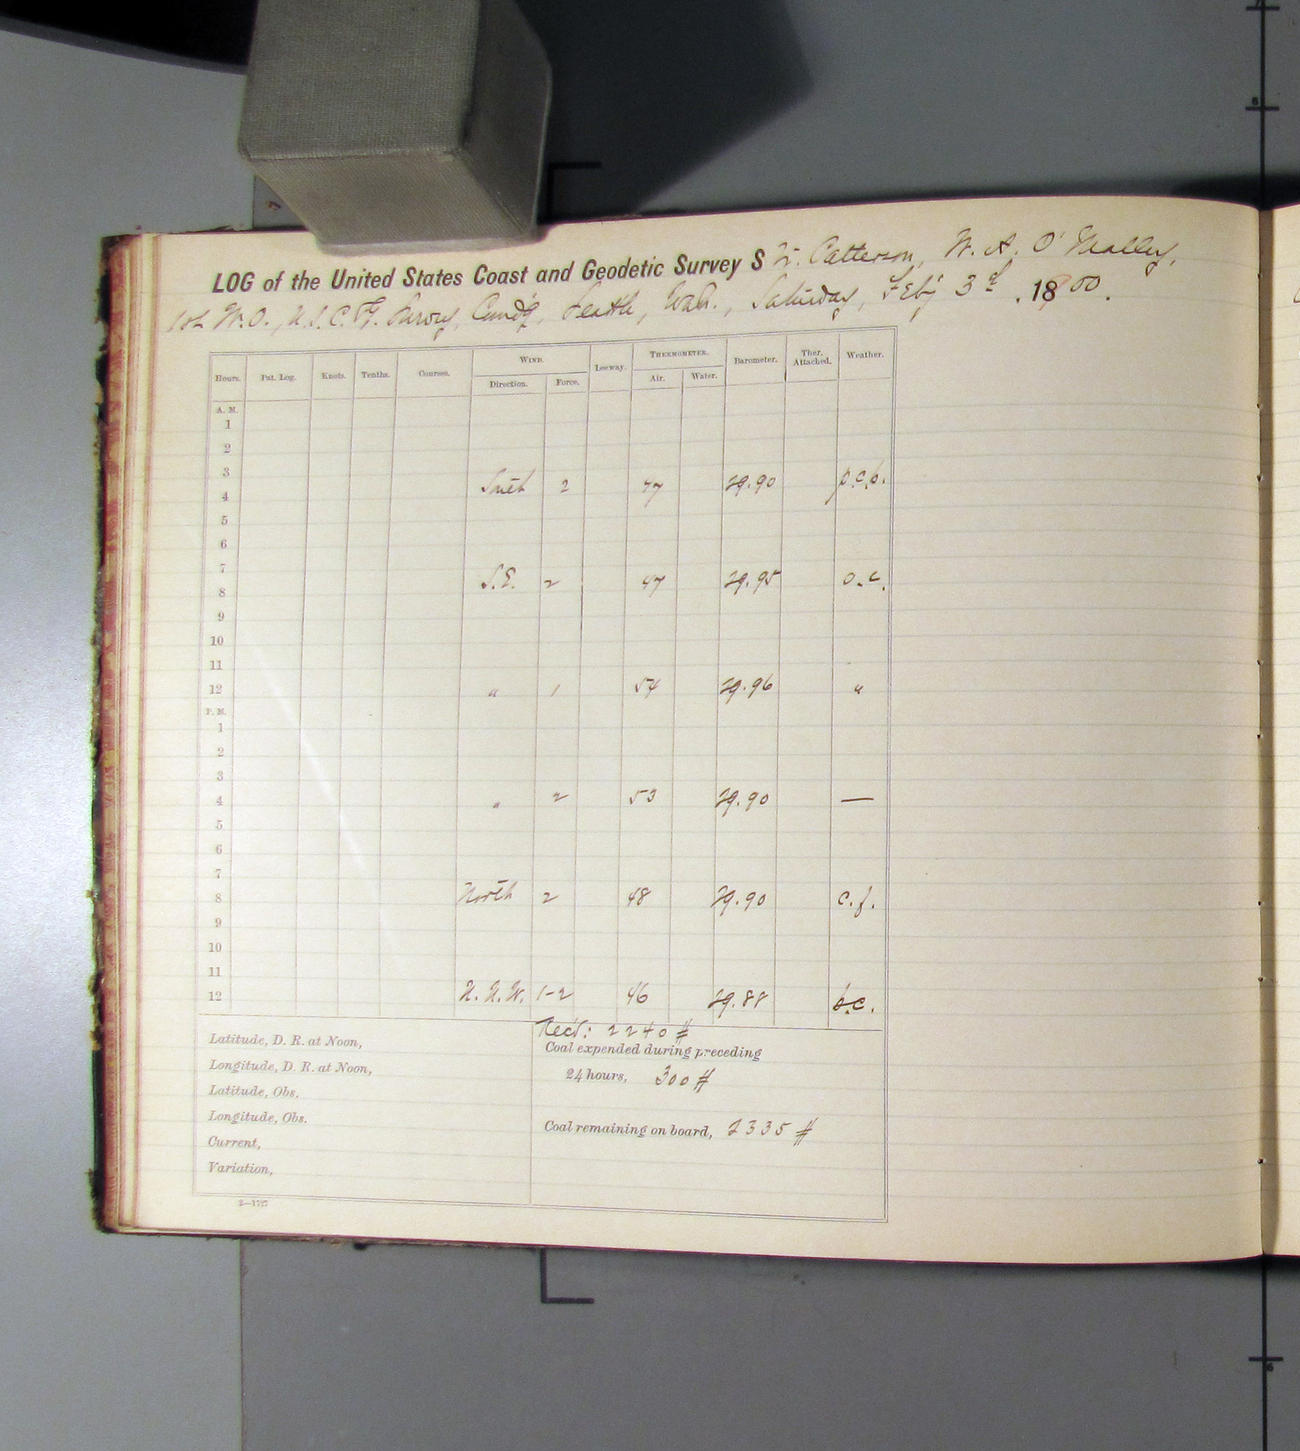 LOG of the United States Coast and Geodetic Survey S Tr. Patterson, W. A. O'Malley,
1st W.O., U.S.C.&G. Survey, Comd'g, Seattle, Wash., Saturday, Feby 3d, 1800.
Hours. Pat. Log. Knots. Tenths. Courses. WIND. Direction. Force. Leeway. THERMOMETER. Air. Water. Barometer. Ther. Attached. Weather.
A. M.
1
2
3
4 South 2 47 29.90 p.c.b.
5
6
7
8 S.E. 2 47 29.95 o.c.
9
10
11
12 " 1 54 29.96 "
P. M.
1
2
3
4 " 2 53 29.90 —
5
6
7
8 North 2 48 29.90 c.f.
9
10
11
12 N.N.W. 1-2 46 29.88 b.c.
Latitude, D. R. at Noon,
Longitude, D. R. at Noon,
Latitude, Obs.
Longitude, Obs.
Current,
Variation,
Rec'd: 2240 #
Coal expended during preceding
24 hours, 300 #
Coal remaining on board, 2335 #
2—1727